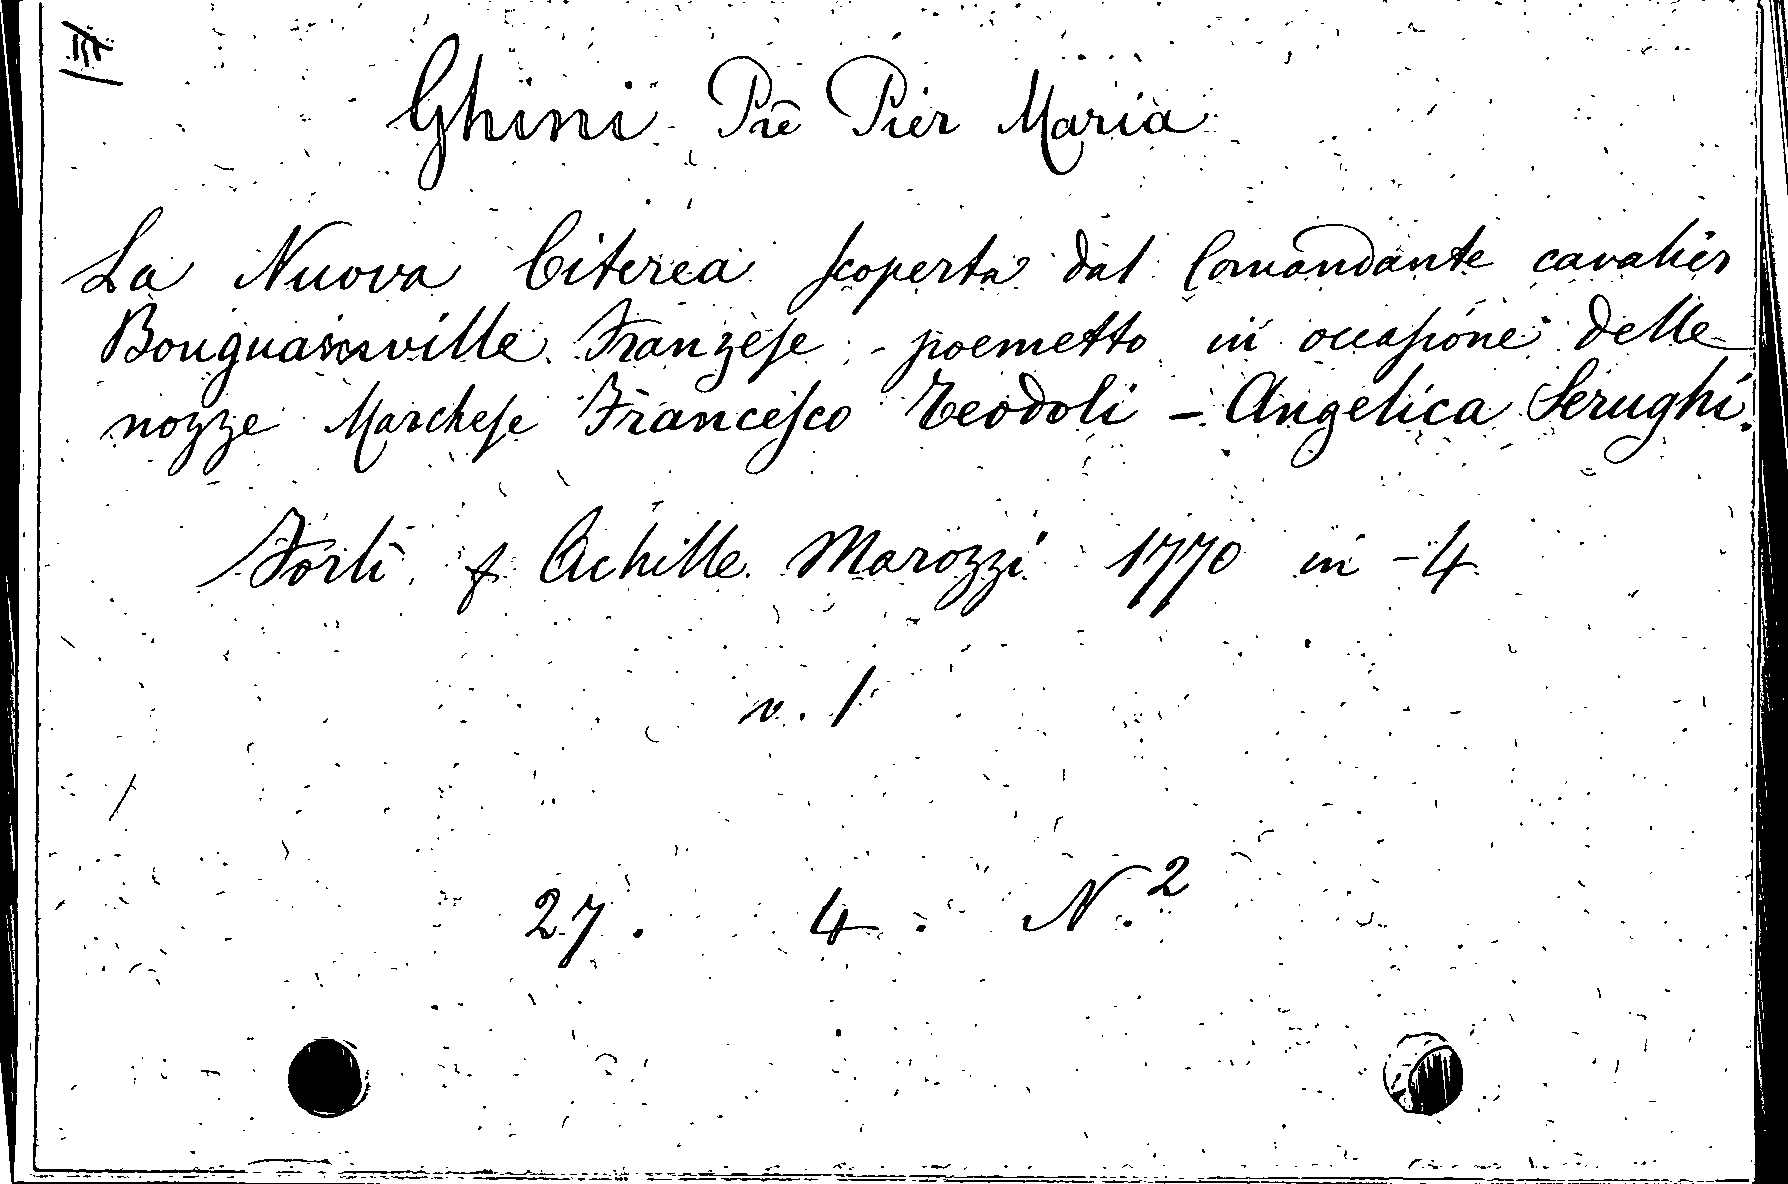 Ghini Prē Pier Maria
La Nuova Citerea scoperta dal Comandante cavalier
Bouguainville Franzese - poemetto in occasione delle
nozze Marchese Francesco Teodoli - Angelica Serughi.
Forlì f. Achille Marozzi 1770 in - 4
v. 1
27. 4. N.2